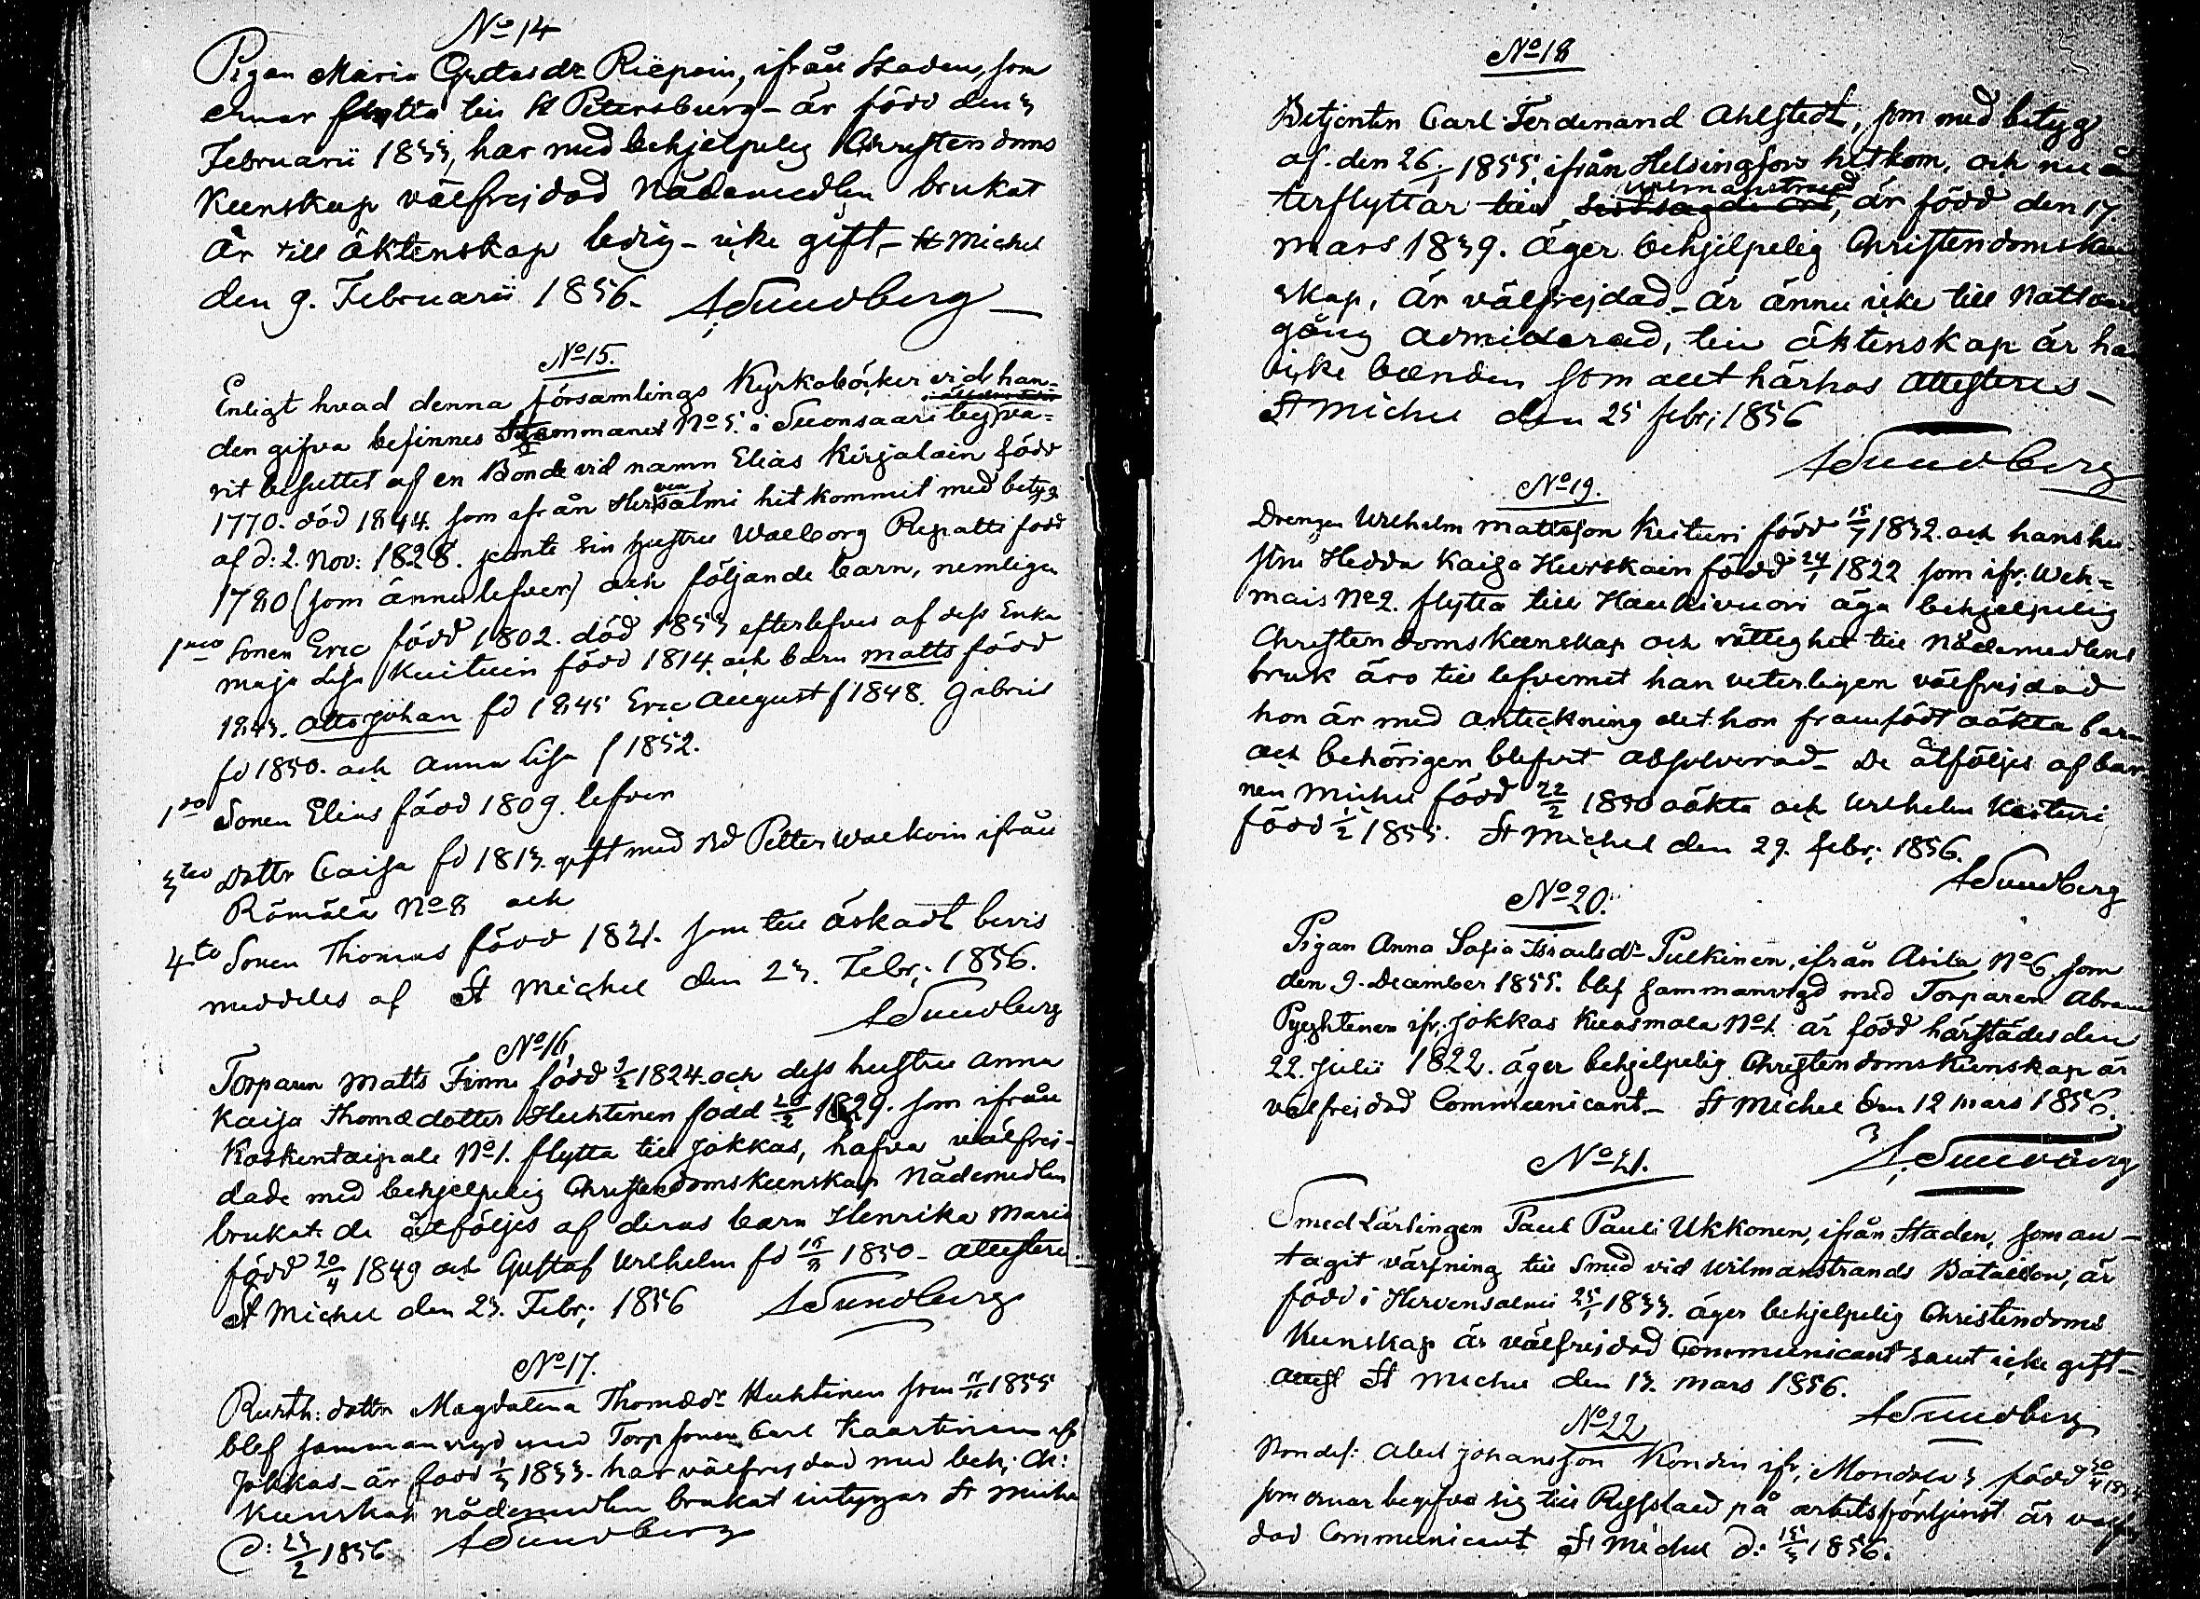 No 14
Pigan Maria Gretasdr Riipoin, ifrån Staden, som
ernar flytta till St Petersburg – är född den 3
Februarii 1833, har med behjelpelig Christendoms
Kunskap välfrejdad Nådemedlen brukat
Är till äktenskap ledig – icke gift – St Michel
den 9. Februarii 1856. ASundberg
No 15.
Enligt hvad denna församlings Kyrkoböcker vid han-
den gifva befinnes hemmanet No 5. i Suonsaari by va-
rit besuttet af en Bonde vid namn Elias Kirjalain född
1770. död 1844. som ifrån Hirvensalmi hit kommit med betyg
af d: 2. Nov: 1828. jemte sin hustru Walborg Repatti född
1780 (som ännu lefver) och följande barn, nemligen
1mo Sonen Eric född 1802. död 1853 efterlefves af dess Enka
Maja Lisa Kuituin född 1814. och barn Matts född
1843. Otto Johan fd 1845 Eric August f 1848. Gabriel
fd 1850. och Anna Lisa f 1852.
Sonen Elias född 1809. lefver
3tio Dottr Caisa fd 1813. gift med Bd Petter Walkoin ifrån
Römälä No 8 och
4to Sonen Thomas född 1821. som till äskadt bevis
meddeles af St Michel den 23. Febr: 1856.
ASundberg
No 16.
Torparen Matts Finne född 3/2 1824. och dess hustru Anna
Kaisa Thomædotter Huhtinen född 1829. som ifrån
Koskentaipale No 1. flytta till Jokkas, hafva välfrej-
dade med behjelpelig Christendomskunskap Nådemedlen
brukat. de åtföljes af deras barn Henrika Maria
född 20/4 1849 och Gustaf Wilhelm fd 1850 – attestera
St Michel den 23. Febr: 1856 ASundberg
No 17.
Rusth: dottr Magdalena Thomædr Huhtinen som 1855
blef sammanvigd med Torpsonen Carl Kaartinen ifr
Jokkas – är född 1833. har välfrejdad med beh: Ch:
kunskap nådemedlen brukat intygar St Michel
d: 23/2 1856 ASundberg
No 18
Betjenten Carl Ferdinand Ahlstedt, som med betyg
af den 26/1 1855. ifrån Helsingfors hitkom, och nu å
terflyttar till Wilmanstrand, är född den 17.
Mars 1839. Äger behjelpelig Christendomskun
skap, är välfrejdad – är ännu icke till Nattvard
gång admitterad, till äktenskap är han
icke bunden som allt härhos attesteres –
St Michel den 25 febr; 1856
ASundberg
No 19.
Drengen Wilhelm Mattsson Keituri född 15/7 1832. och hans hu-
stru Hedda Kaisa Hurskain född 24/1 1822 som ifr. Weh-
mais No 2. flytta till Haukivuori äga behjelpelig
Christendomskunskap och rättighet till Nådemedlens
bruk äro till lefvernet han veterligen välfrejdad
hon är med anteckning det hon framfödt oäkta barn
och behörigen blifvit absolverad – De åtföljes af bar
nen Michel född 22/2 1850 oäkta och Wilhelm Keituri
född 1855. St Michel den 29. febr: 1856.
ASundberg
No 20.
Pigan Anna Sofia Isaelsdr Pulkinen, ifrån Asila No 6. som
den 9. December 1855. blef sammanvigd med Torparen Abram
ifr: Jokkas Kuosmala No 1. är född härstädes den
22. Julii 1822. äger behjelpelig Christendomskunskap är
välfrejdad Communicant – St Michel den 12 Mars 1856.
A. Sundberg
No 21.
Smed Lärlingen Paul Pauli Ukkonen, ifrån Staden, som an-
tagit värfning till Smed vid Wilmanstrands Bataillon, är
född i Hirvensalmi 25/1 1833. äger behjelpelig Christendoms
Kunskap är välfrejdad Communicant samt icke gift –
attest St Michel den 13. Mars 1856.
ASundberg
No 22
Abel Johansson Kondin ifr: född
som ernar begifva sig till Ryssland på arbetsförtjenst är välfr
dad Communicant St Michel d: 15/3 1856.